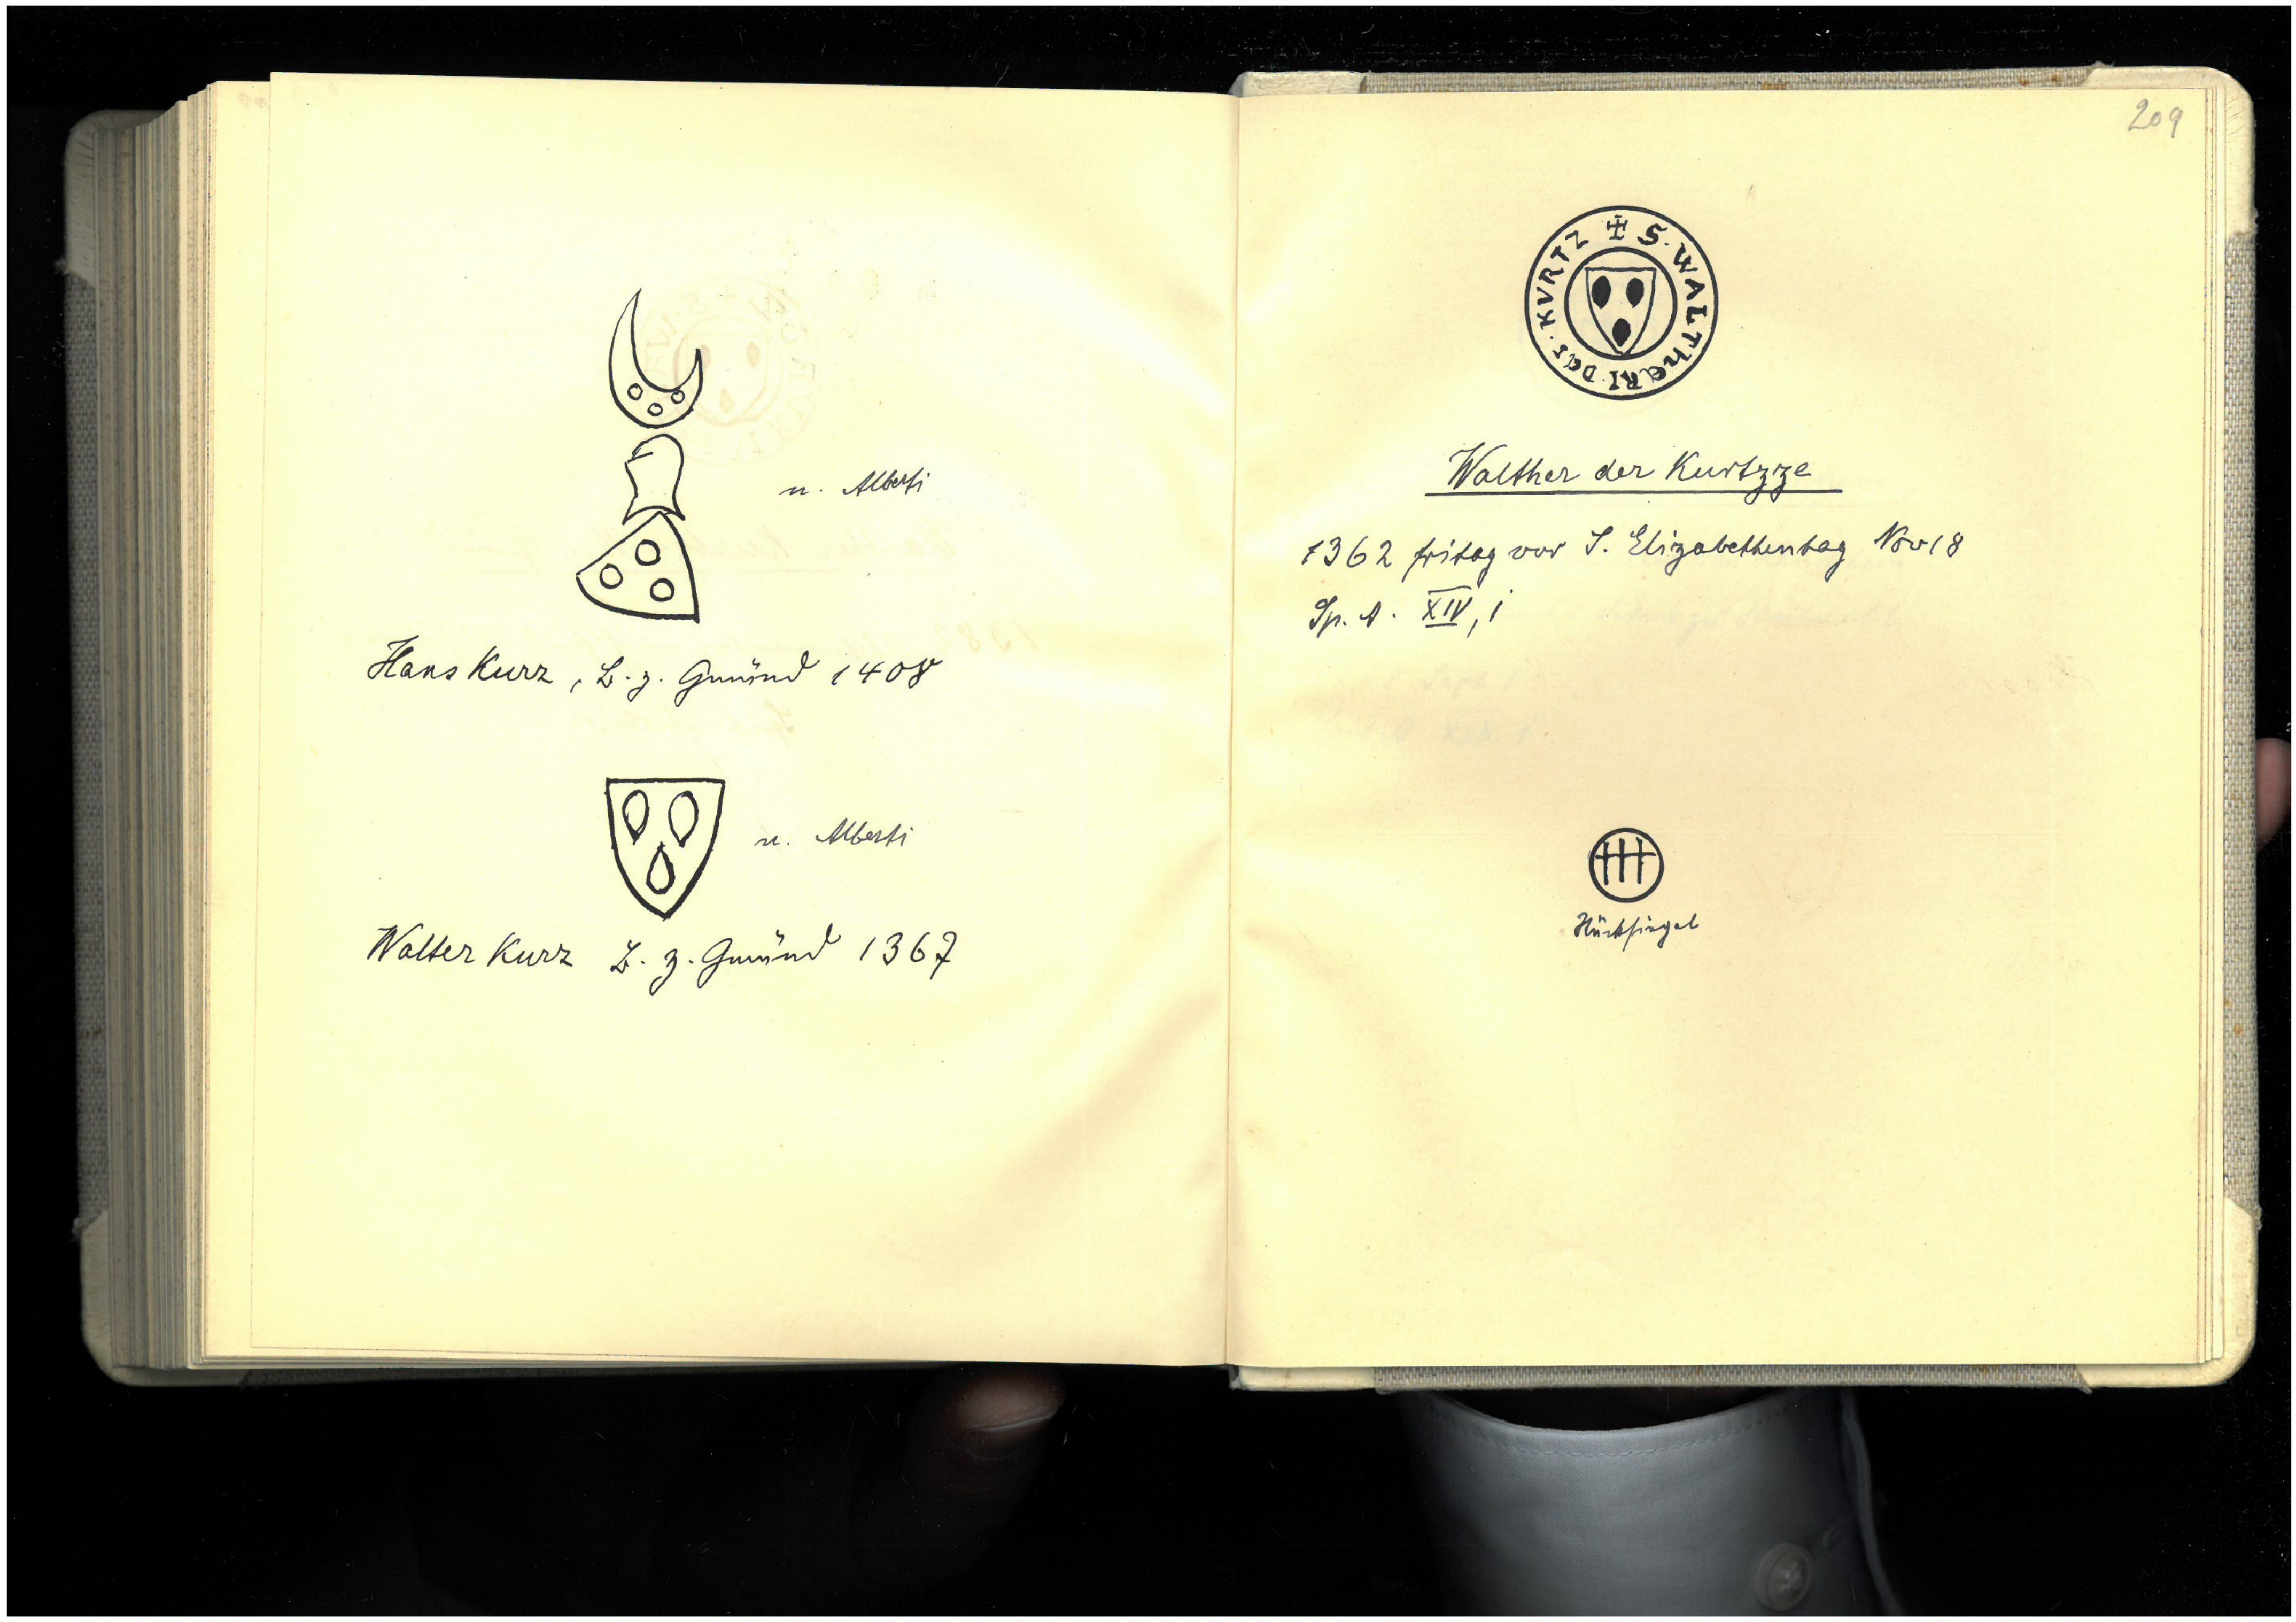 n. Alberti
Hans Kurz, B. z. Gmünd 1408
n. Alberti
Walter Kurz B. z. Gmünd 1367
209
✠ S. WALTHERI. DES. KVRTZ
Walther der Kurtzze
1362 fritag vor S. Elizabethentag Nov 18
Sp. A. XIV, 1
Rücksiegel